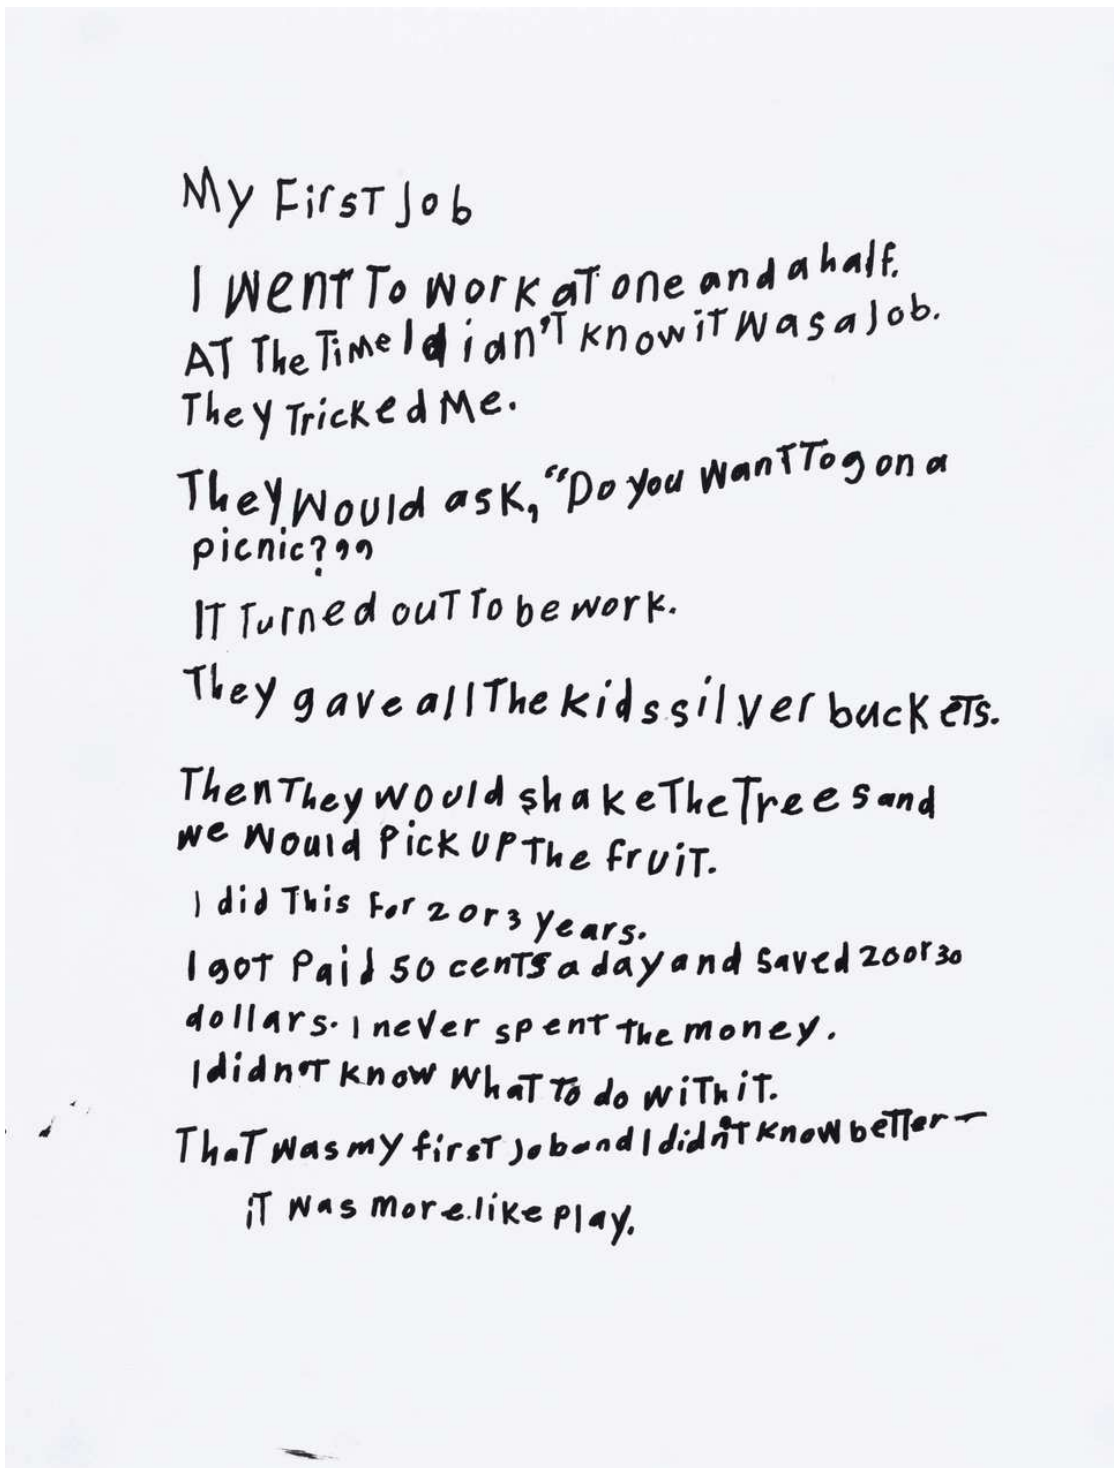 My First Job
I went To work aT one and a half.
AT The Time I didn'T know iT was a Job.
They Tricked Me.
They would ask, "Do you wanT To g on a
picnic?"
IT Turned ouT To be work.
They gave all The kids silver buckeTs.
Then They would shake The Trees and
we would Pick UP The fruiT.
I did This For 2 or 3 years.
I goT Paid 50 cenTs a day and saved 20 or 30
dollars. I never spenT the money.
I didn'T know whaT To do wiTh iT.
ThaT was my firsT job and I didn'T know beTTer—
iT was more like play.